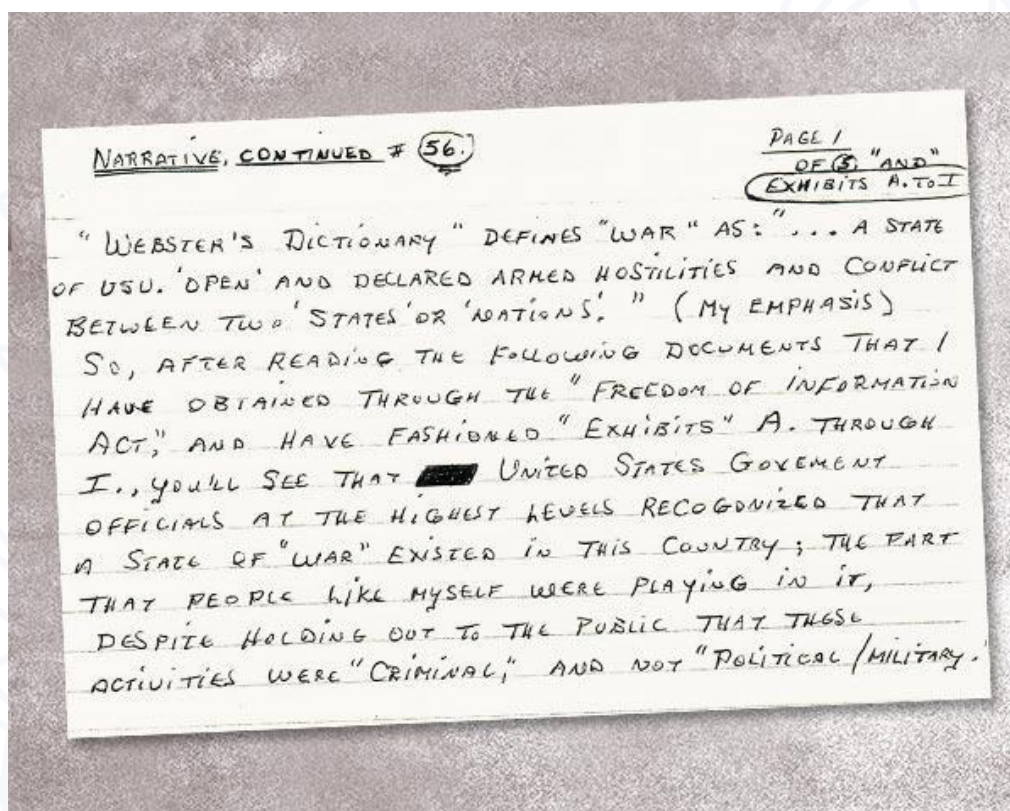 NARRATIVE, CONTINUED # 56.
PAGE 1
OF 5. "AND"
EXHIBITS A. TO I
"WEBSTER'S DICTIONARY" DEFINES "WAR" AS: "... A STATE
OF USU. 'OPEN' AND DECLARED ARMED HOSTILITIES AND CONFLICT
BETWEEN TWO 'STATES' OR 'NATIONS'." (MY EMPHASIS)
SO, AFTER READING THE FOLLOWING DOCUMENTS THAT I
HAVE OBTAINED THROUGH THE "FREEDOM OF INFORMATION
ACT," AND HAVE FASHIONED "EXHIBITS" A. THROUGH
I., YOU'LL SEE THAT UNITED STATES GOVEMENT
OFFICIALS AT THE HIGHEST LEVELS RECOGONIZED THAT
A STATE OF "WAR" EXISTED IN THIS COUNTRY; THE PART
THAT PEOPLE LIKE MYSELF WERE PLAYING IN IT,
DESPITE HOLDING OUT TO THE PUBLIC THAT THESE
ACTIVITIES WERE "CRIMINAL," AND NOT "POLITICAL/MILITARY.